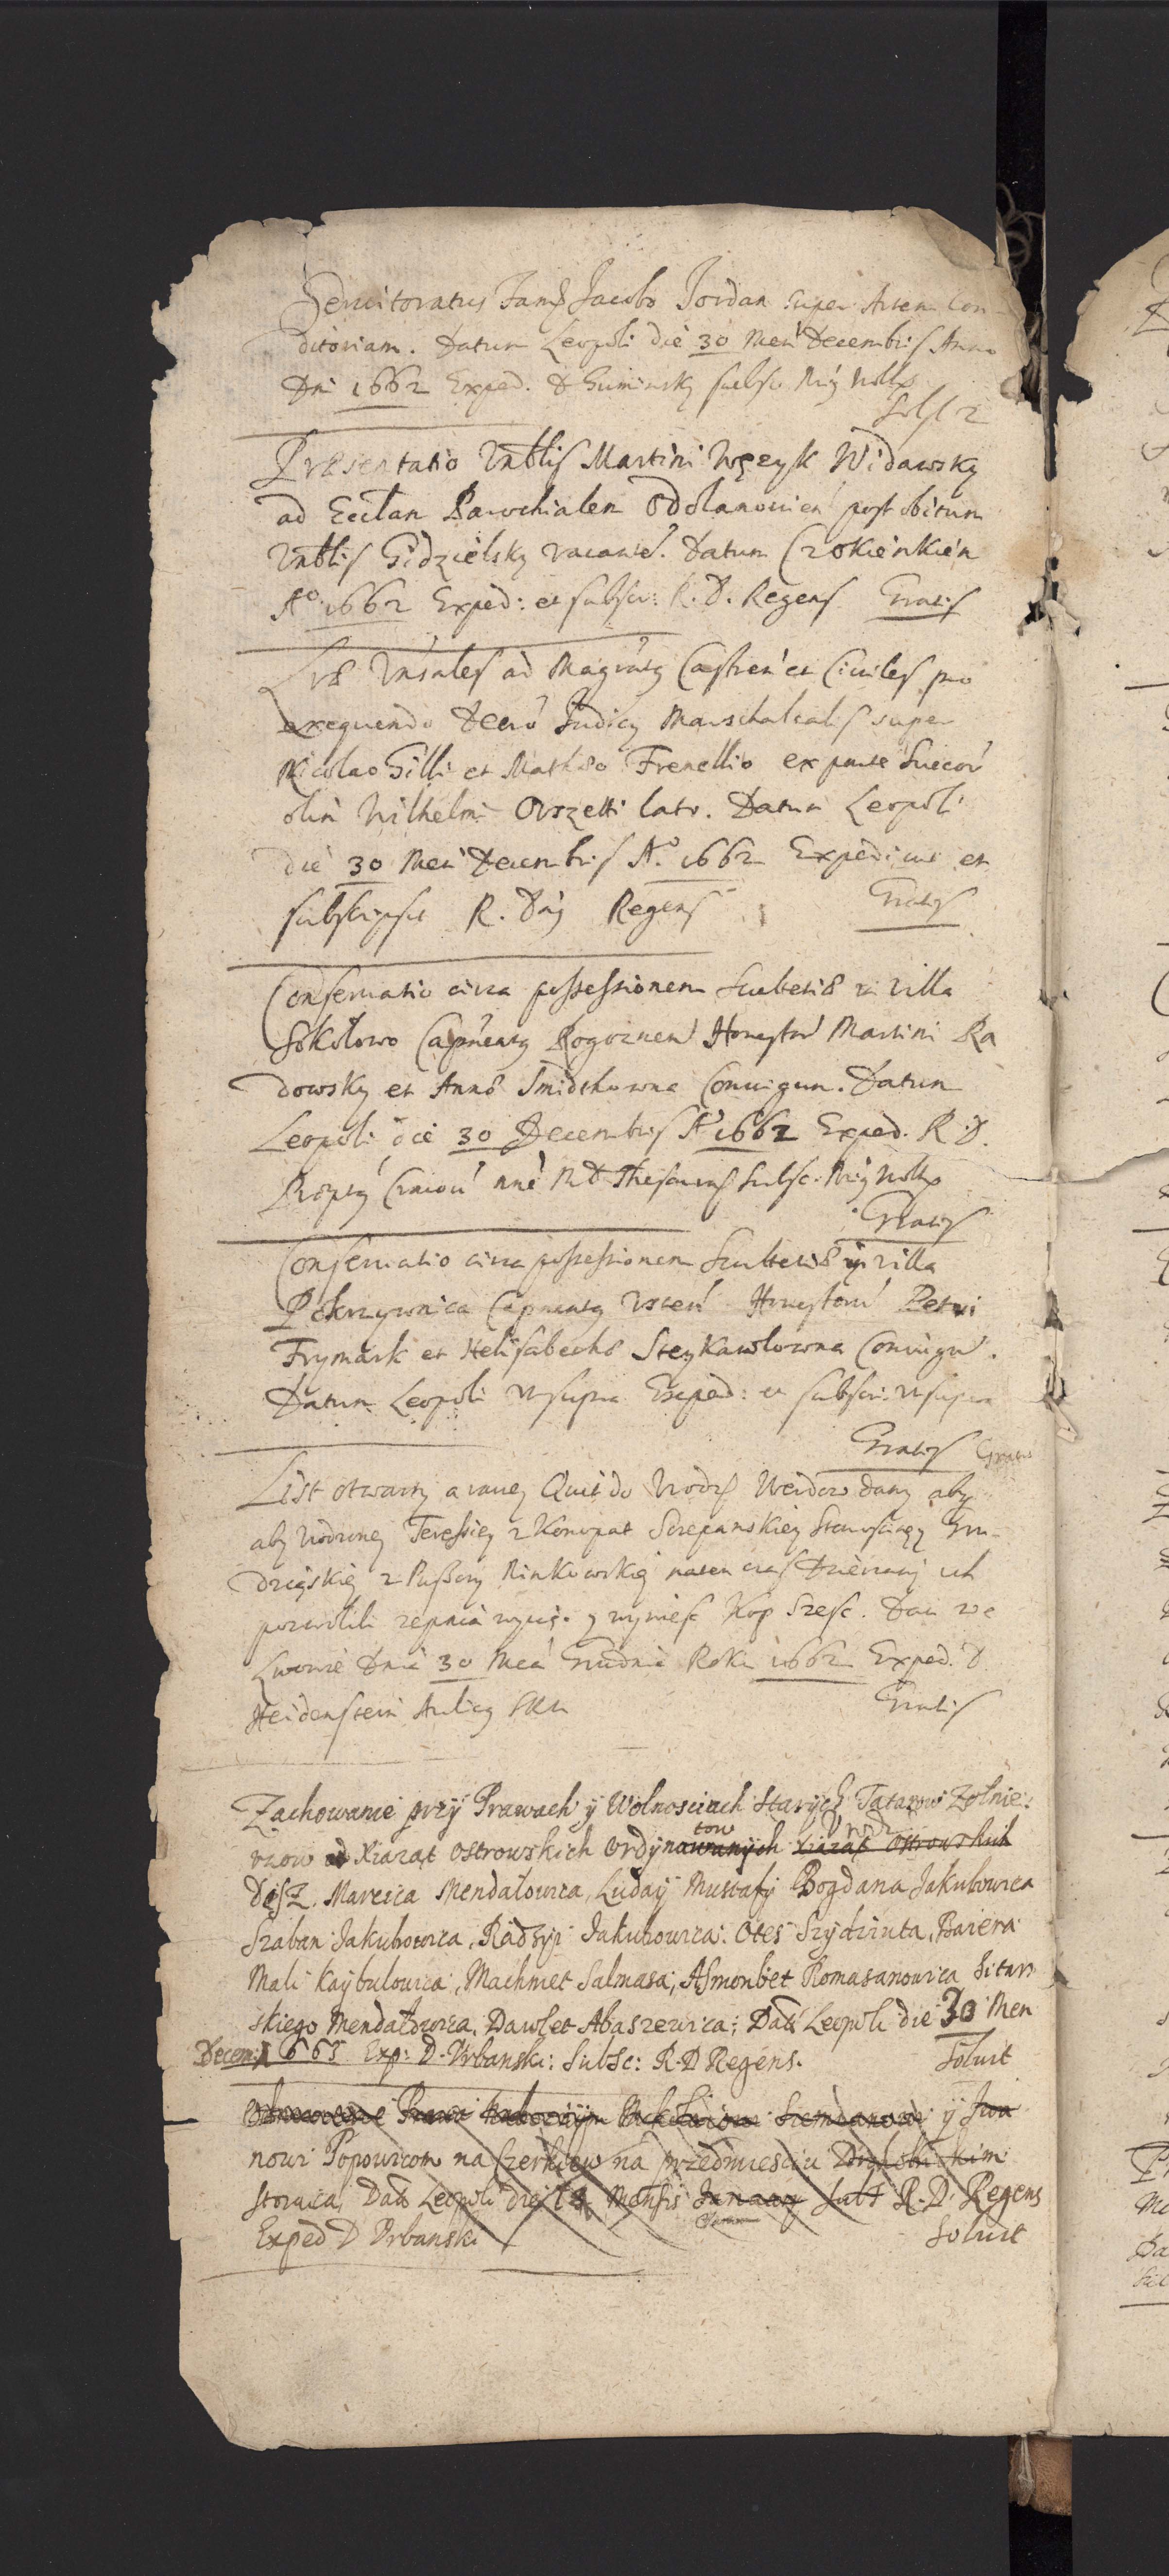 Servitoratus Jacobo Jordan super Artem Con-
ditoriam. Datum Leopoli die 30 Men Decembris Anno
Dni 1662 Exped. D Guminsky subsc
Sol fl 2
Præsentatio Vnblis Martini Węzyk Widawsky
ad Eccłam Parochialem Odolanouien post obitum
Vnblis Gidzielsky vacantē. Datum Czokienkien
Aº 1662 Exped: et subscr: R. D. Regens Gratis
Lræ Vnsales ad Magrātg Castren et Ciuiles pro
exequendo Decrō Judicy Marschalcalis super
Nicolao Gilli et Mathæo Frenellio ex parte Succor
olim Wilhelmi Orszetti latr. Datum Leopoli
die 30 Men Decembris Aº 1662 Expediuit et
subscripsit R. Dny Regens Gratis
Conseruatio circa possessionem Scultetiæ in Villa
Sokołowo Capneatg Rogoznen Honestor Martini Ra
dowsky et Annæ Smidthowna Coniugum. Datum
Leopoli die 30 Decembris Aº 1662 Exped. R. D.
Subsc.
Gratis
Conseruatio circa possessionem Scultetiæ in villa
Pokrzywnica Capneatg Vscen Honestorū Petri
Frymark et Helisabethæ Steykawlowna Coniugū.
Datum Leopoli vt supra Exped: et subscr: vt supra
Gratis Gratis
List otwarty Quit do Vrodz Weidow dany aby
aby Vrodzoney Teressiey z Konopat Szczepanskiey Staroscięy Gru-
dziąskię z Puszczy Rinkowskię naten czas Dzierzawy ich
pozwolili y wywieść Kop Szesc. Dan we
Lwowie Dnia 30 Mcā Grudnia Roku 1662 Exped. D
Heidenstein Gratis
Zachowanie przy Prawach y Wolnosciach Starych Tatarow Zolnie:
rzow od Xiarząt Ostrowskich Ordynawanych tow Xiarząt Ostrowskich
Mareica Mendałowica, Luday Mustafy Bogdana Jakubowica
Szaban Jakubowica, Radzyi Jakubowica: Otes Szydziuta, Baiera
Mali Kaybulowica, Machmet Salmasa, Asmonbet Romasanowica Sitar
skiego Mendałowica, Dawlet Abaszewica; Datū Leopoli die 30 Men
Decem: 1663 Exp: D. Vrbanski: Subsc: R. D Regens. Soluit
Prawa y Iwa
nowi Popowicom na Czerkiew na przedmiesciu
Datū Leopoli die Mensis January subs R. D. Regens
Exped D Vrbanski Soluit